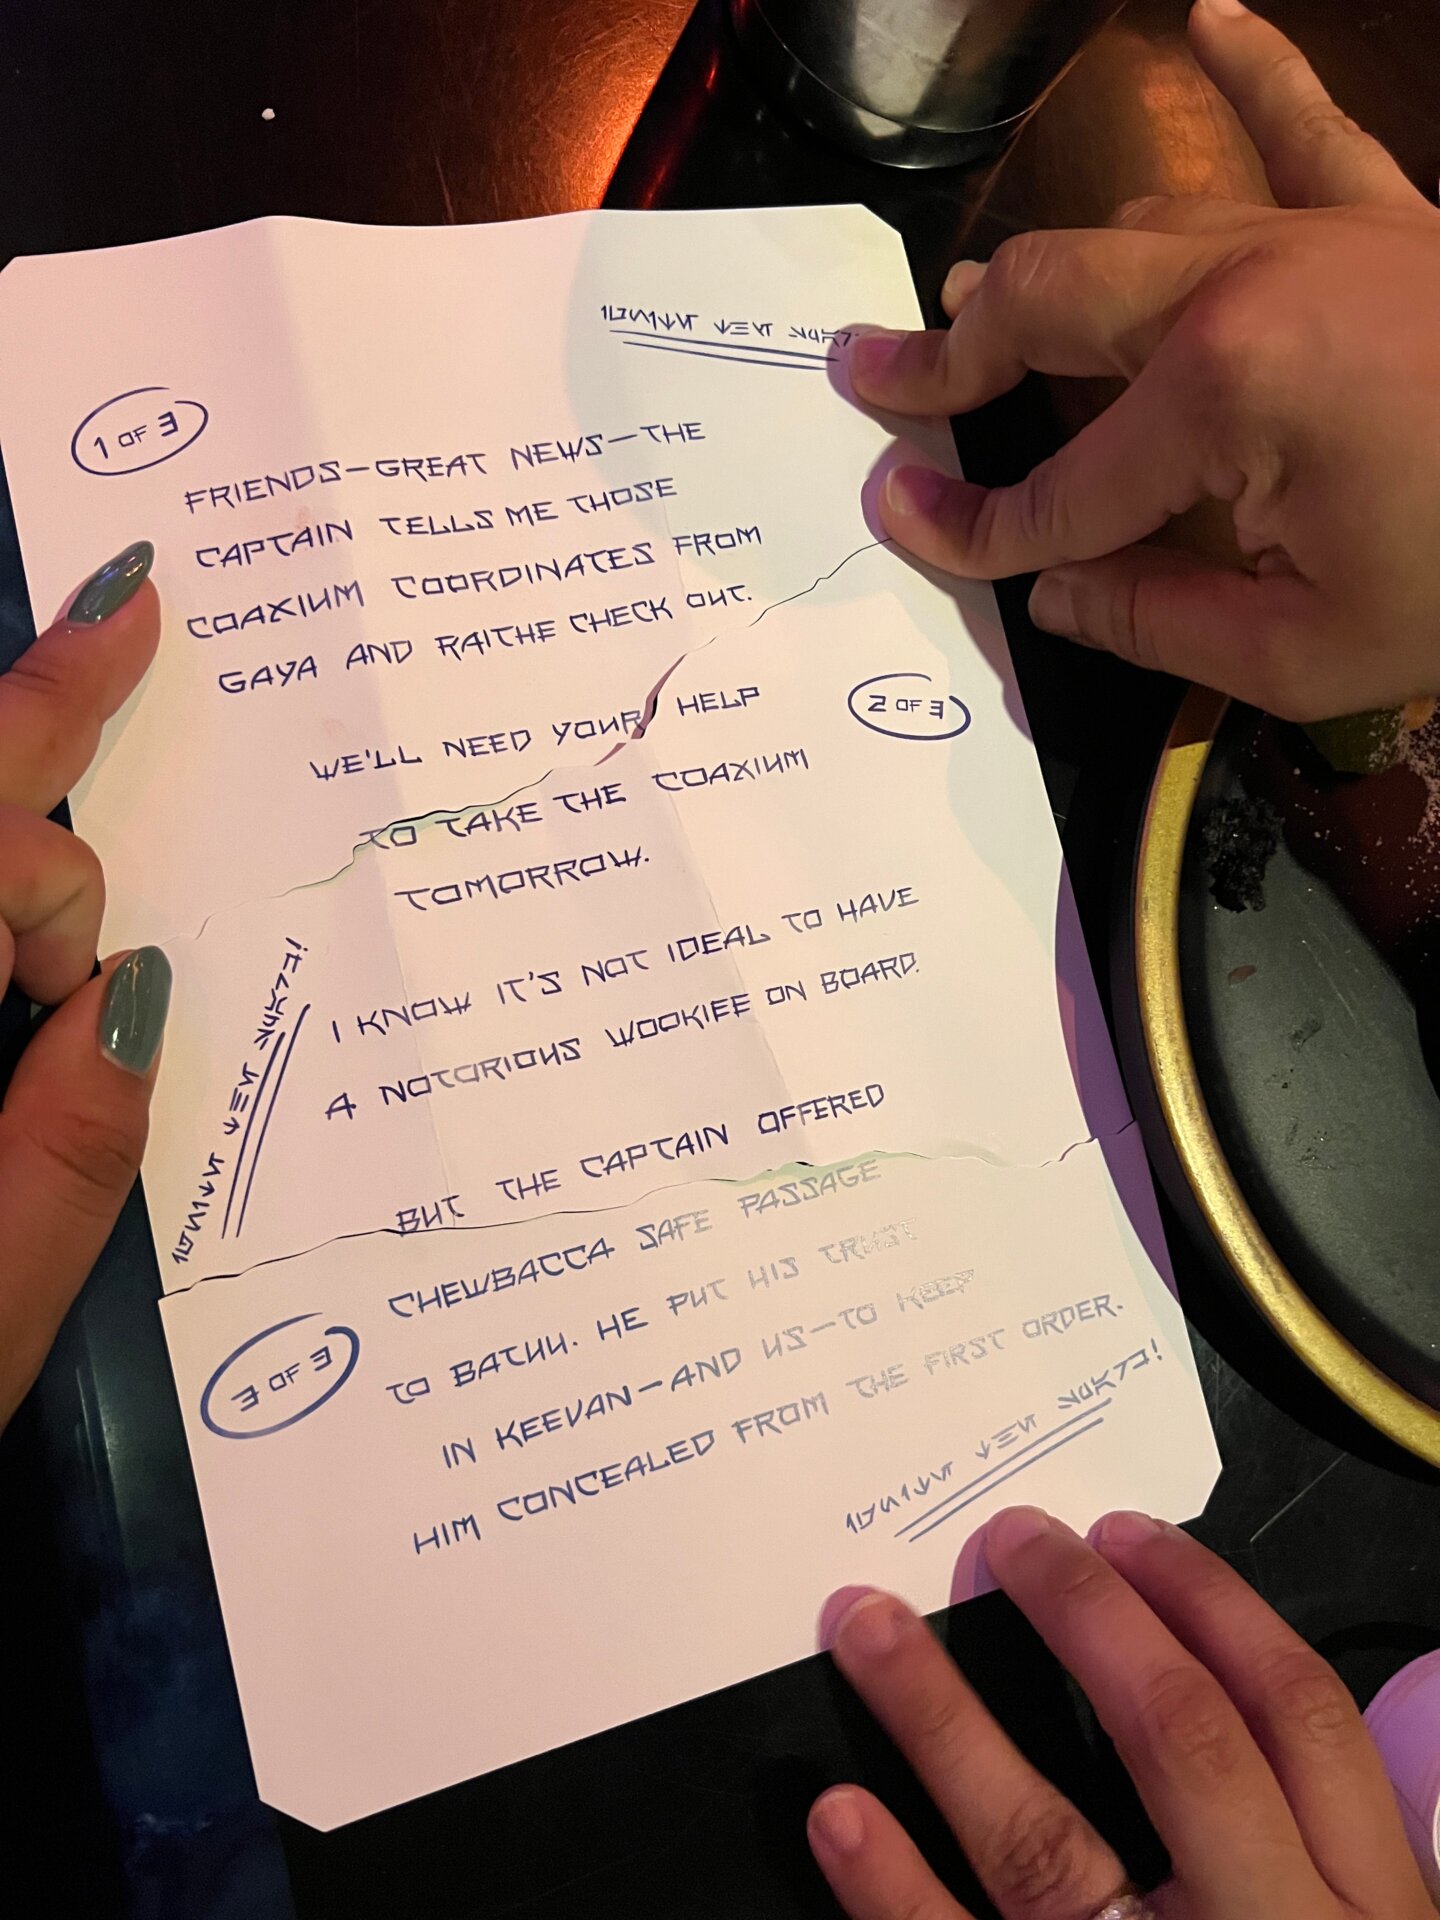 1 OF 3
FRIENDS—GREAT NEWS—THE
CAPTAIN TELLS ME THOSE
COAXIUM COORDINATES FROM
GAYA AND RAITHE CHECK OUT.
WE'LL NEED YOUR HELP
2 OF 3
TO TAKE THE COAXIUM
TOMORROW.
I KNOW IT'S NOT IDEAL TO HAVE
A NOTORIOUS WOOKIEE ON BOARD.
BUT THE CAPTAIN OFFERED
3 OF 3
CHEWBACCA SAFE PASSAGE
TO BATUU. HE PUT HIS TRUST
IN KEEVAN—AND US—TO KEEP
HIM CONCEALED FROM THE FIRST ORDER.